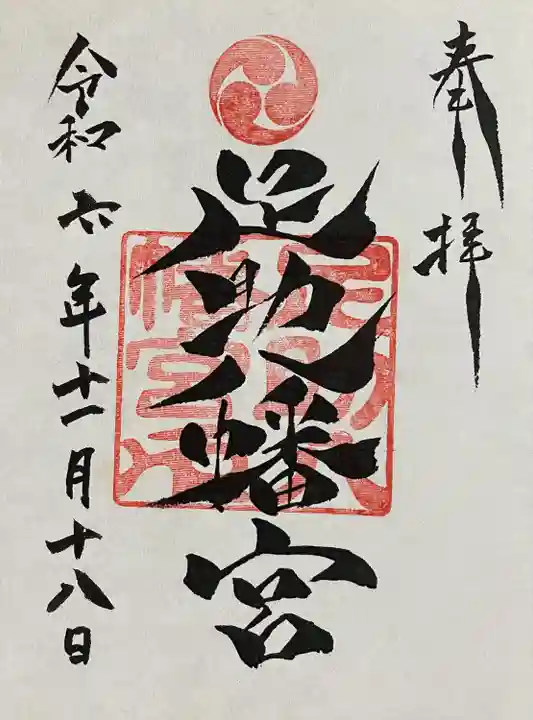 奉拝
足助八幡宮
令和六年十一月十八日